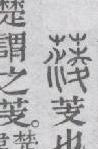 蔆芰也
楚謂之芰。